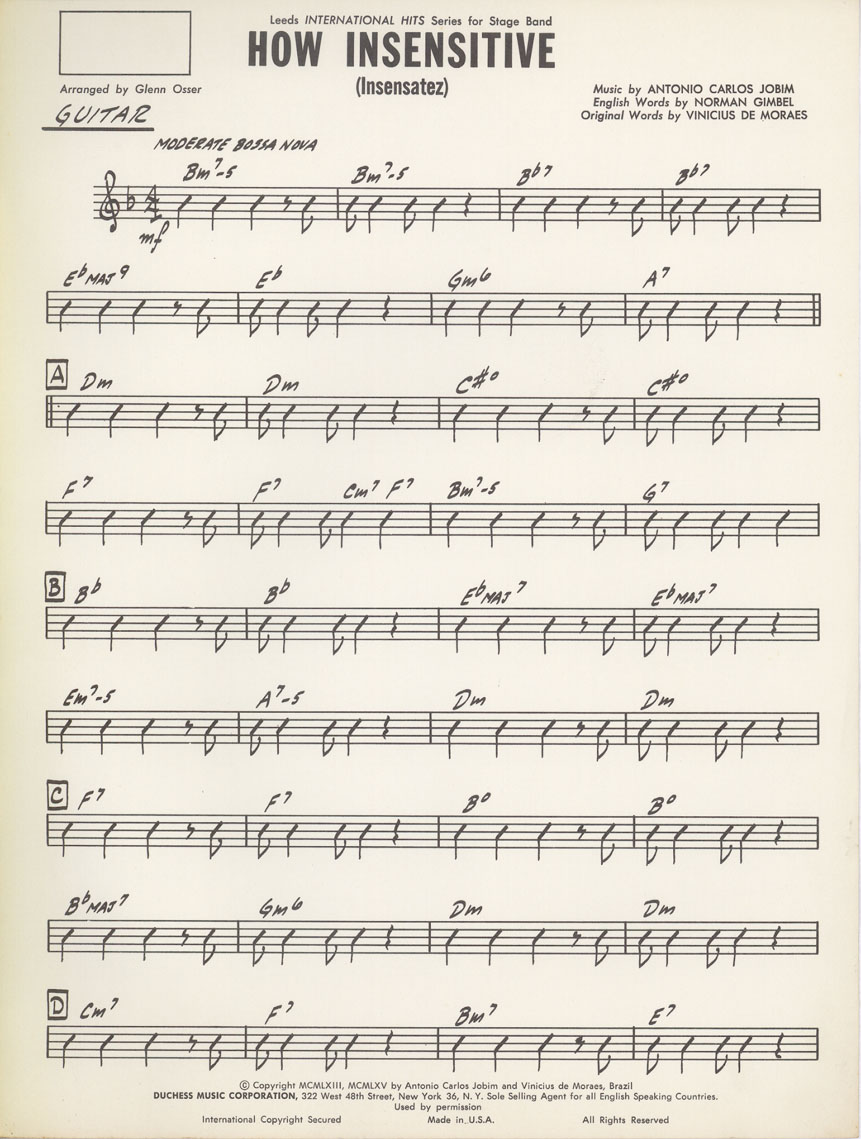 Leeds INTERNATIONAL HITS Series for Stage Band
HOW INSENSITIVE
(Insensatez)
Arranged by Glenn Osser
Music by ANTONIO CARLOS JOBIM
English Words by NORMAN GIMBEL
Original Words by VINICIUS DE MORAES
GUITAR
MODERATE BOSSA NOVA
Bm7-5 Bm7-5 Bb7 Bb7
4
4
mf
EbMAJ9 Eb Gm6 A7
A Dm Dm C#o C#o
F7 F7 Cm7 F7 Bm7-5 G7
B Bb Bb EbMAJ7 EbMAJ7
Em7-5 A7-5 Dm Dm
C F7 F7 Bo Bo
BbMAJ7 Gm6 Dm Dm
D Cm7 F7 Bm7 E7
© Copyright MCMLXIII, MCMLXV by Antonio Carlos Jobim and Vinicius de Moraes, Brazil
DUCHESS MUSIC CORPORATION, 322 West 48th Street, New York 36, N. Y. Sole Selling Agent for all English Speaking Countries.
Used by permission
International Copyright Secured Made in U.S.A. All Rights Reserved